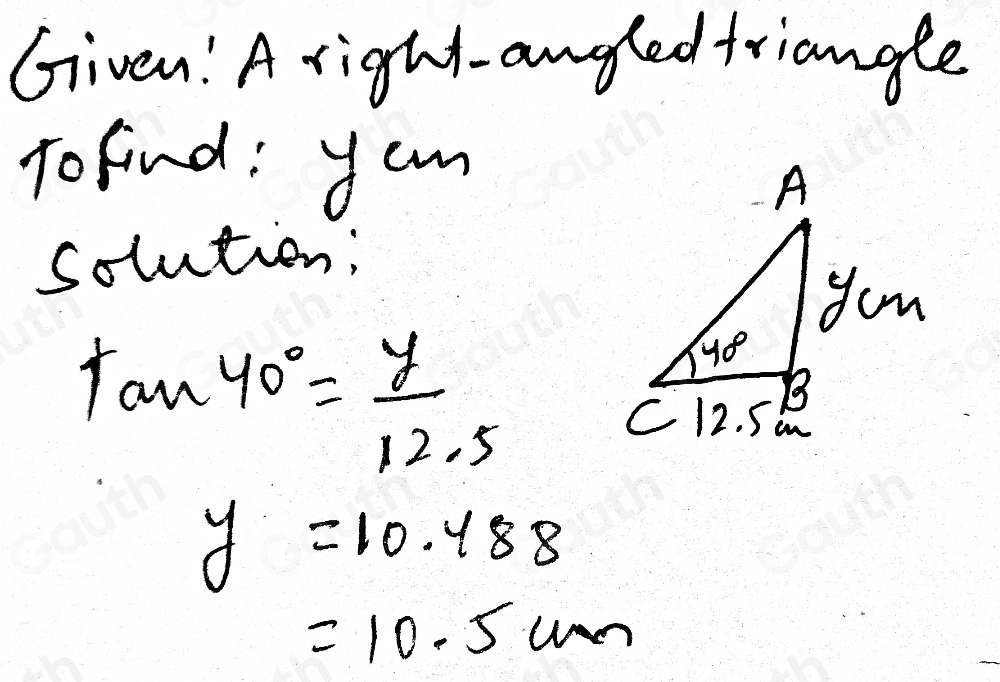 Given: A right-angled triangle
To find: y cm
Solution:
A
y cm
40°
B
C 12.5 cm
Tan 40° = y/12.5
y = 10.488
= 10.5 cm
Gauth